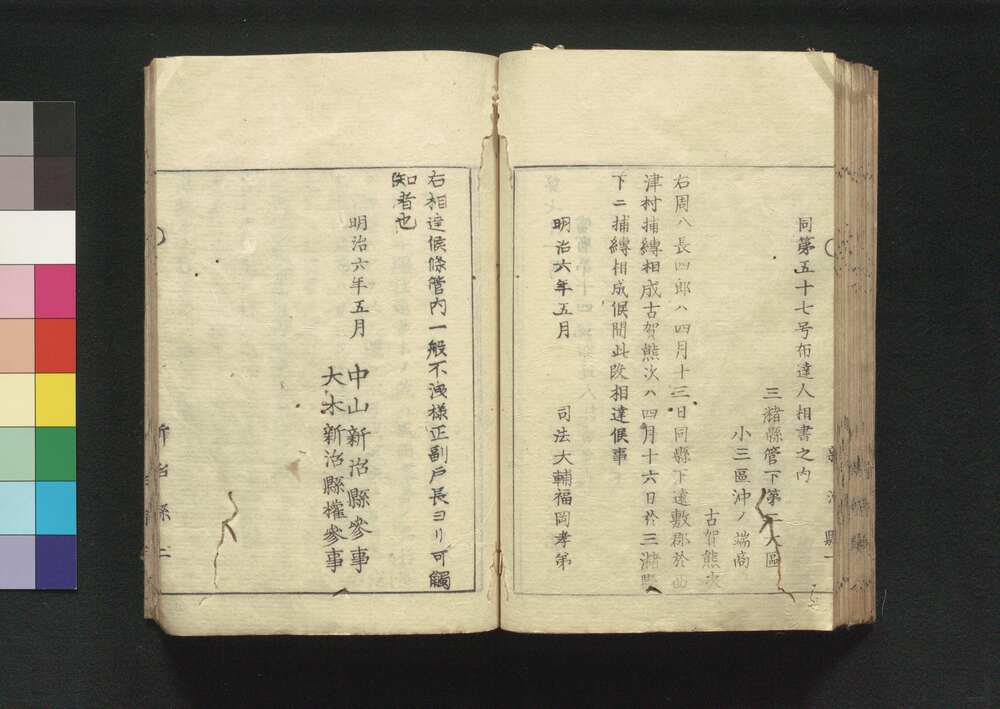 同第五十七号布達人相書之内
三潴縣管下第二大區
小三區沖ノ端商
古賀熊次
右周八長四郎ハ四月十三日同縣下達敷郡於曲
津村捕縛相成古賀熊次ハ四月十六日於三潴縣
下ニ捕縛相成候間此段相達候事
明治六年五月
司法大輔福岡孝弟
右相達候條管内一般不洩様正副戸長ヨリ可觸
知者也
明治六年五月
中山新治縣參事
大木新治縣權參事
新治縣